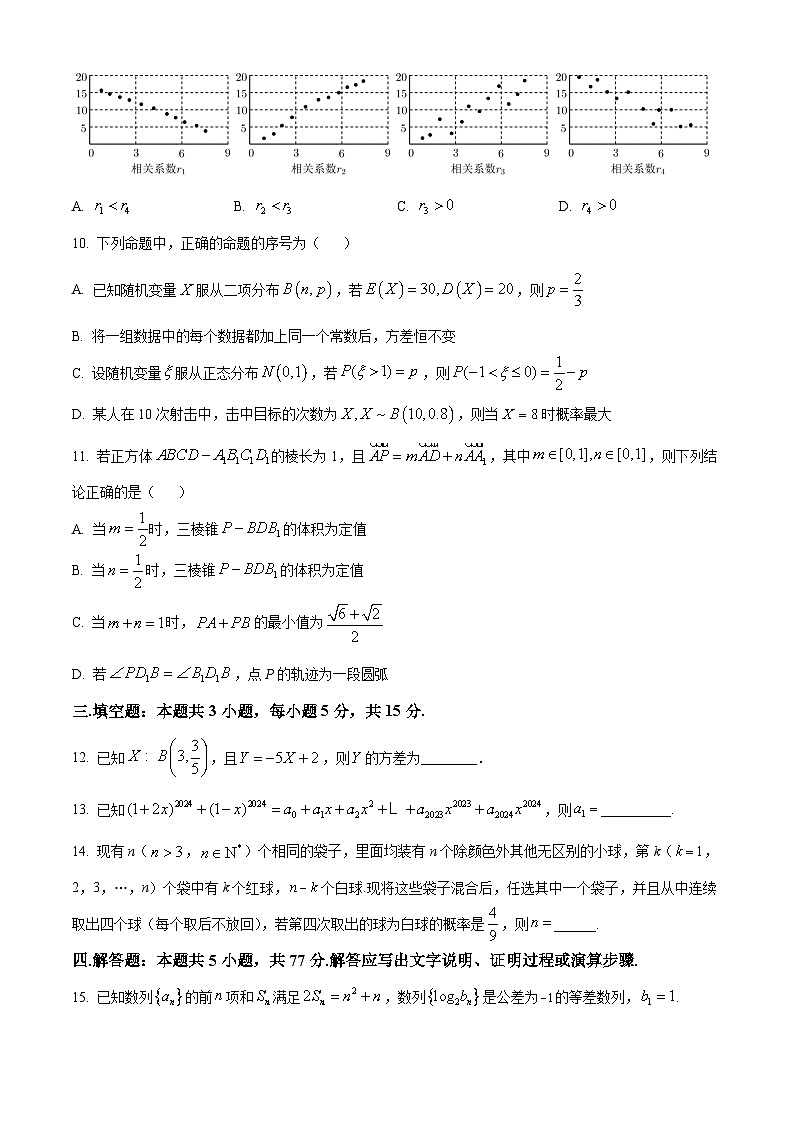 20 15 10 5 0 3 6 9 相关系数r₁
20 15 10 5 0 3 6 9 相关系数r₂
20 15 10 5 0 3 6 9 相关系数r₃
20 15 10 5 0 3 6 9 相关系数r₄
A. r₁ < r₄ B. r₂ < r₃ C. r₃ > 0 D. r₄ > 0
10. 下列命题中，正确的命题的序号为（ ）
A. 已知随机变量 X 服从二项分布 B(n, p)，若 E(X) = 30, D(X) = 20，则 p = 2/3
B. 将一组数据中的每个数据都加上同一个常数后，方差恒不变
C. 设随机变量 ξ 服从正态分布 N(0,1)，若 P(ξ > 1) = p，则 P(−1 < ξ ≤ 0) = 1/2 − p
D. 某人在 10 次射击中，击中目标的次数为 X, X ~ B(10, 0.8)，则当 X = 8 时概率最大
11. 若正方体 ABCD − A₁B₁C₁D₁ 的棱长为 1，且 AP = mAD + nAA₁，其中 m ∈ [0,1], n ∈ [0,1]，则下列结
论正确的是（ ）
A. 当 m = 1/2 时，三棱锥 P − BDB₁ 的体积为定值
B. 当 n = 1/2 时，三棱锥 P − BDB₁ 的体积为定值
C. 当 m + n = 1 时，PA + PB 的最小值为 (√6 + √2)/2
D. 若 ∠PD₁B = ∠B₁D₁B，点 P 的轨迹为一段圆弧
三.填空题：本题共 3 小题，每小题 5 分，共 15 分.
12. 已知 X : B(3, 3/5)，且 Y = −5X + 2，则 Y 的方差为________.
13. 已知 (1 + 2x)²⁰²⁴ + (1 − x)²⁰²⁴ = a₀ + a₁x + a₂x² + L + a₂₀₂₃x²⁰²³ + a₂₀₂₄x²⁰²⁴，则 a₁ = __________.
14. 现有 n（n > 3，n ∈ N*）个相同的袋子，里面均装有 n 个除颜色外其他无区别的小球，第 k（k = 1，
2，3，…，n）个袋中有 k 个红球，n − k 个白球.现将这些袋子混合后，任选其中一个袋子，并且从中连续
取出四个球（每个取后不放回），若第四次取出的球为白球的概率是 4/9，则 n = ______.
四.解答题：本题共 5 小题，共 77 分.解答应写出文字说明、证明过程或演算步骤.
15. 已知数列{aₙ}的前 n 项和 Sₙ 满足 2Sₙ = n² + n，数列{log₂bₙ}是公差为 −1 的等差数列，b₁ = 1.